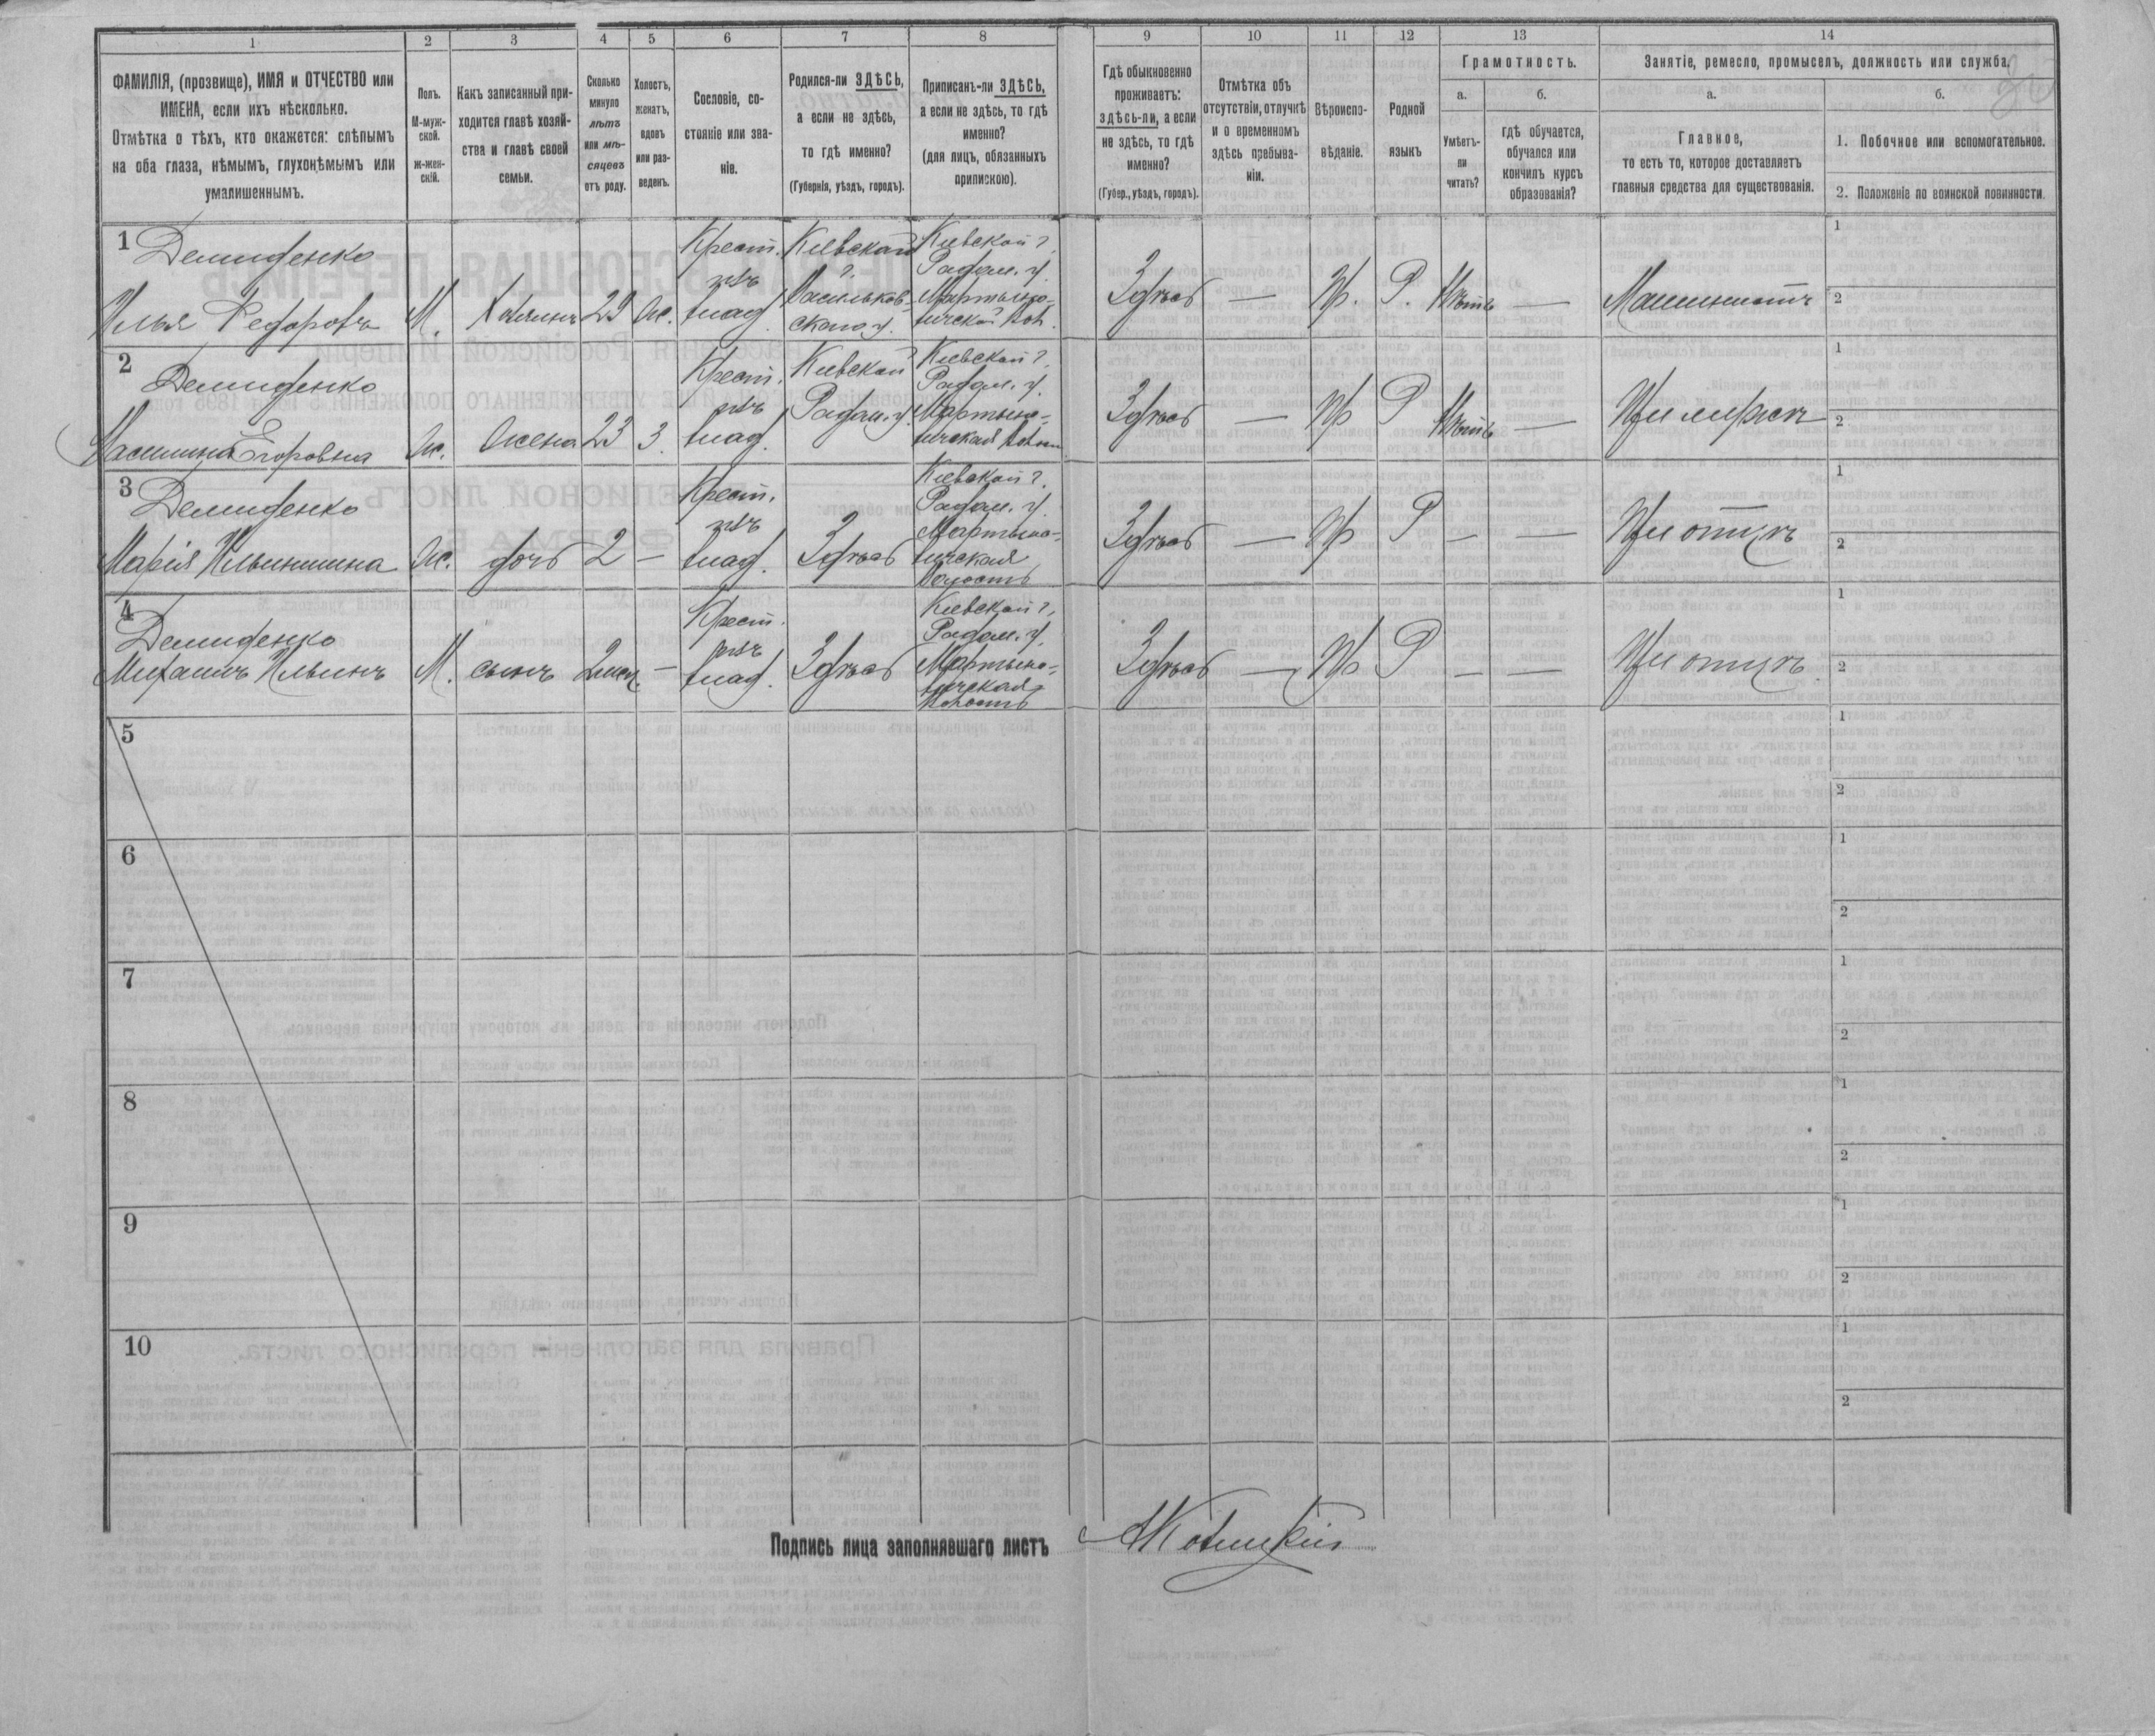 1 2 3 4 5 6 7 8 9 10 11 12 13 14
ФАМИЛІЯ, (прозвище), ИМЯ и ОТЧЕСТВО или
ИМЕНА, если ихъ нѣсколько.
Отмѣтка о тѣхъ, кто окажется: слѣпымъ
на оба глаза, нѣмымъ, глухонѣмымъ или
умалишеннымъ.
Полъ.
М-муж-
ской.
ж-жен-
скій.
Какъ записанный при-
ходится главѣ хозяй-
ства и главѣ своей
семьи.
Сколько
минуло
лѣтъ
или мѣ-
сяцевъ
отъ роду.
Холостъ,
женатъ,
вдовъ
или раз-
веденъ.
Сословіе, со-
стояніе или зва-
ніе.
Родился-ли ЗДѢСЬ,
а если не здѣсь,
то гдѣ именно?
(Губернія, уѣздъ, городъ).
Приписанъ-ли ЗДѢСЬ,
а если не здѣсь, то гдѣ
именно?
(для лицъ, обязанныхъ
припискою).
Гдѣ обыкновенно
проживаетъ:
здѣсь-ли, а если
не здѣсь, то гдѣ
именно?
(Губер., уѣздъ, городъ).
Отмѣтка объ
отсутствіи, отлучкѣ
и о временномъ
здѣсь пребыва-
ніи.
Вѣроиспо-
вѣданіе.
Родной
языкъ
Грамотность.
а.
Умѣетъ-
ли
читать?
б.
гдѣ обучается,
обучался или
кончилъ курсъ
образованія?
Занятіе, ремесло, промыселъ, должность или служба.
а.
Главное,
то есть то, которое доставляетъ
главныя средства для существованія.
б.
1. Побочное или вспомогательное.
2. Положеніе по воинской повинности.
1
Демиденко
Илья Федоровъ
М.
Хозяинъ
29
Ж.
Крест.
изъ
влад.
Кіевской
г.
Васильков-
скаго у.
Кіевской г.
Радом. у.
Мартыно-
вичской вол.
Здѣсь
—
Пр.
Р.
Нѣтъ
—
Машинистъ
1
2
2
Демиденко
Егоровна
Ж.
Жена
23
З.
Крест.
изъ
влад.
Кіевской г.
Радом. у.
Кіевской г.
Радом. у.
Мартыно-
вичская
Здѣсь
—
Пр
Р
Нѣтъ
—
При мужѣ
1
2
3
Демиденко
Марія Ильинишна
Ж.
дочь
2
—
Крест.
изъ
влад.
Здѣсь
Кіевской г.
Радом. у.
Мартыно-
вичская
Волость
Здѣсь
—
Пр
Р
—
—
При отцѣ
1
2
4
Демиденко
Михаилъ Ильинъ
М.
сынъ
2 мѣс.
—
Крест.
изъ
влад.
Здѣсь
Кіевской г.
Радом. у.
Мартыно-
вичская
Волость
Здѣсь
—
Пр
Р
—
—
При отцѣ
1
2
5
1
2
6
1
2
7
1
2
8
1
2
9
1
2
10
1
2
Подпись лица заполнявшаго листъ